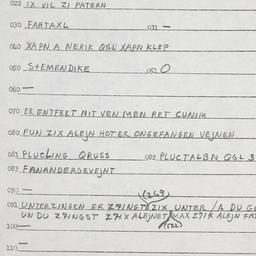 022 IX VIL ZI PATERN
030 FARTAXL 031 —
040 XAPN A NERIK QGL XAPN KLEP
050 STEMENDIKE 051 O
060 —
070 ER ENTFERT MIT VEN MEN RET CUNIM
080 FUN ZIX ALEJN HOT ER ONGEFANGEN VEJNEN
081 PLUCLING QRUSS 082 PLUCTALBN QGL 3
083 FANANDERGEVEJNT
090 —
(269)
091 UNTERZINGEN ER ZZINGT ZIX UNTER / A DU
UN DU ZZINGST ZZIX ALEJNET MAX ZZIX ALEJN
100 — (532)
110